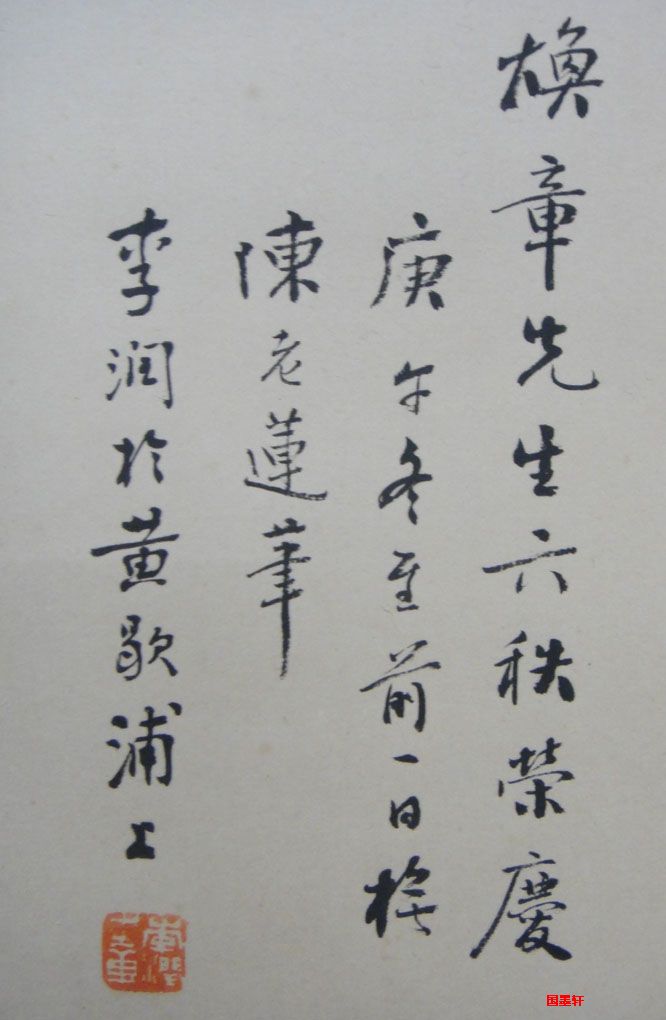 焕章先生六秩荣慶
庚午冬至前一日橅
陳老蓮筆
李润於黄歇浦上
国墨轩